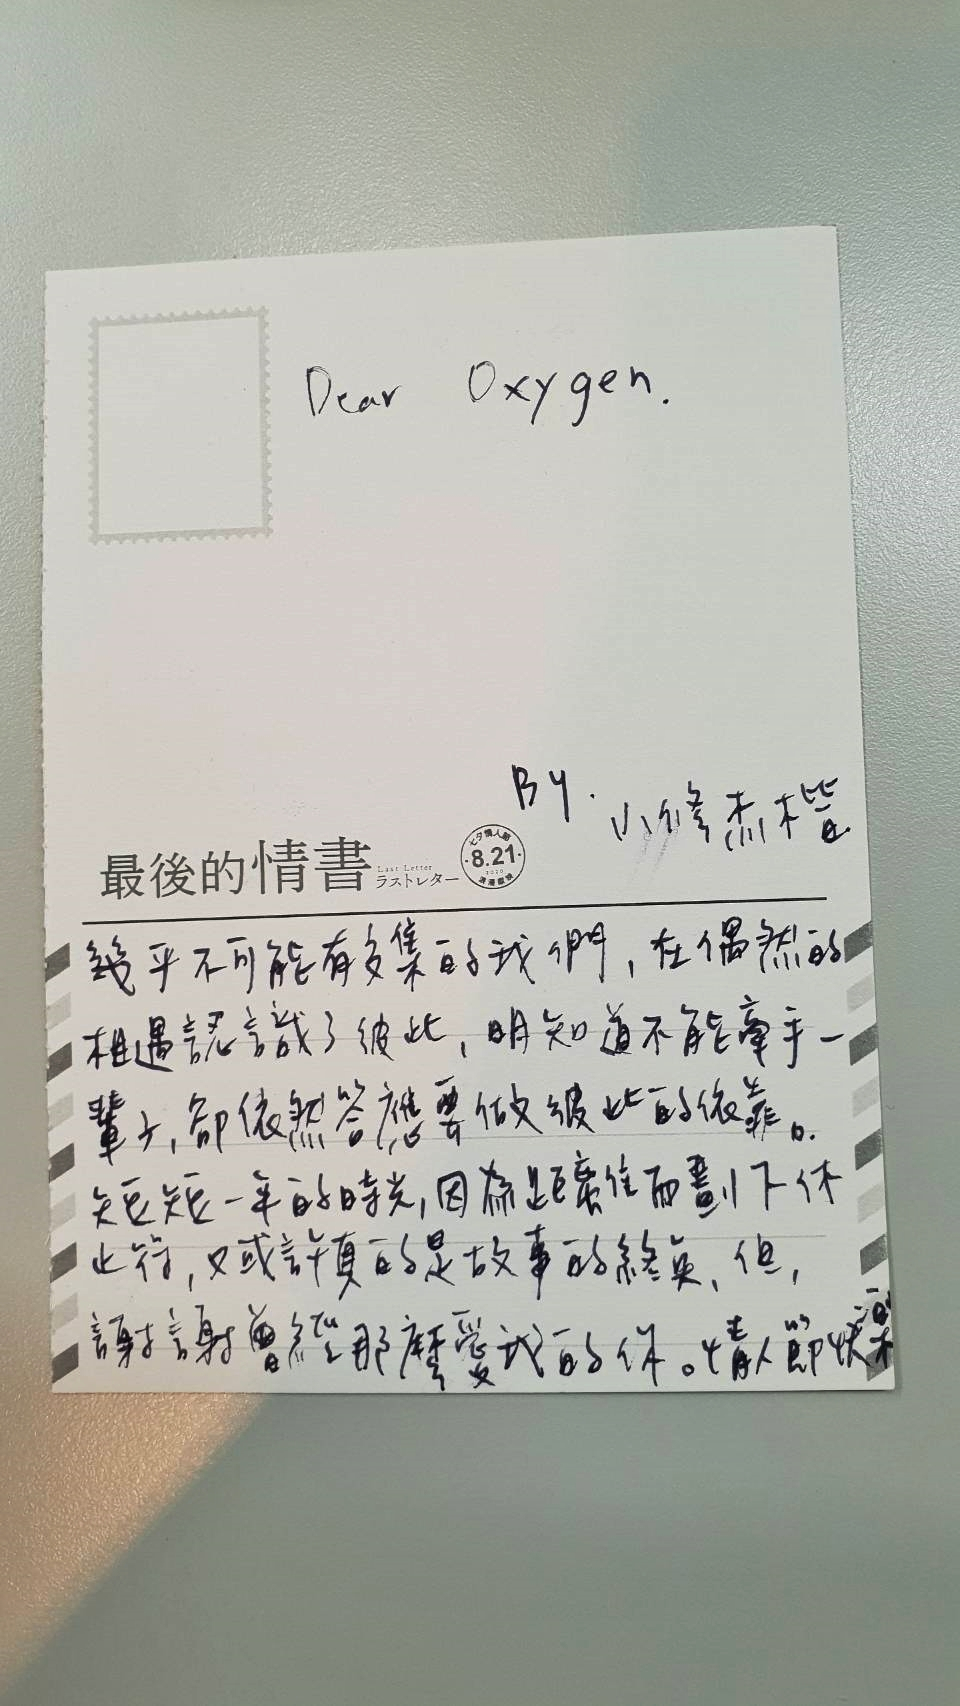 Dear Oxygen.
By.
小修杰楷.
最後的情書
Last Letter
ラストレター
七夕情人節
8.21
2020
浪漫獻映
幾乎不可能有交集的我們,在偶然的
相遇認識了彼此,明知道不能牽手一
輩子,卻依然答應要做彼此的依靠。
短短一年的時光,因為距離住而劃下休
止符,又或許真的是故事的終矣,但,
謝謝曾經那麼愛我的你。情人節快樂